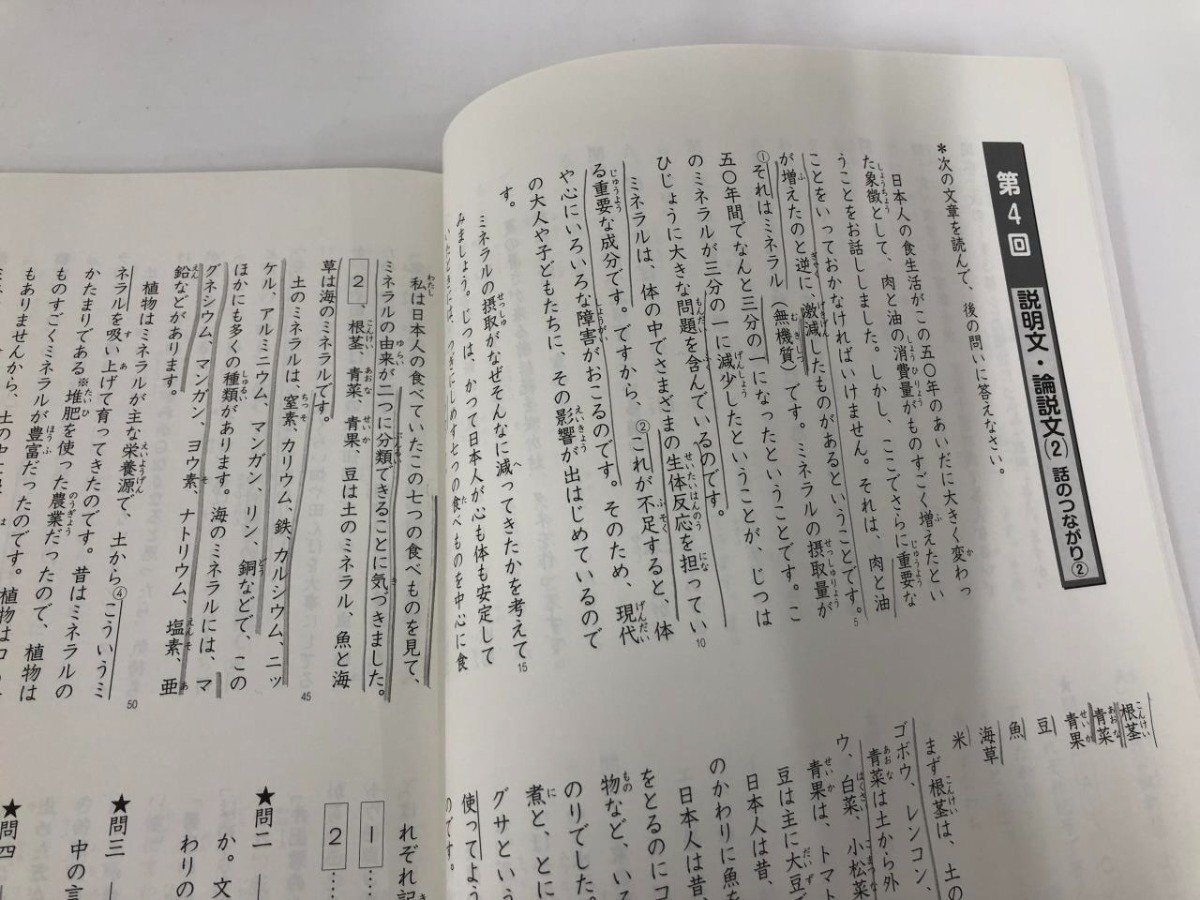 第4回 説明文・論説文(2) 話のつながり②
*次の文章を読んで、後の問いに答えなさい。
日本人の食生活がこの五〇年のあいだに大きく変わっ
た象徴として、肉と油の消費量がものすごく増えたとい
うことをお話ししました。しかし、ここでさらに重要な
ことをいっておかなければいけません。それは、肉と油
が増えたのと逆に、激減したものがあるということです。
①それはミネラル(無機質)です。ミネラルの摂取量が
五〇年間でなんと三分の一になったということです。こ
のミネラルが三分の一に減少したということが、じつは
ひじょうに大きな問題を含んでいるのです。
ミネラルは、体の中でさまざまの生体反応を担ってい
る重要な成分です。ですから、②これが不足すると、体
や心にいろいろな障害がおこるのです。そのため、現代
の大人や子どもたちに、その影響が出はじめているので
す。
ミネラルの摂取がなぜそんなに減ってきたかを考えて
みましょう。じつは、かつて日本人が心も体も安定して
根茎
青菜
青果
豆
魚
海草
米
まず根茎は、土の
ゴボウ、レンコン、
青菜は土から外
ウ、白菜、小松菜
青果は、トマト
豆は主に大豆で
日本人は昔、
のかわりに魚を
日本人は昔
をとるのにコ
物など、いろ
のりでした。
煮と、とに
グサという
使ってよう
のです。
私は日本人の食べていたこの七つの食べものを見て、
ミネラルの由来が二つに分類できることに気づきました。
2、根茎、青菜、青果、豆は土のミネラル、魚と海
草は海のミネラルです。
土のミネラルは、窒素、カリウム、鉄、カルシウム、ニッ
ケル、アルミニウム、マンガン、リン、銅などで、この
ほかにも多くの種類があります。海のミネラルには、マ
グネシウム、マンガン、ヨウ素、ナトリウム、塩素、亜
鉛などがあります。
植物はミネラルが主な栄養源で、土から④こういうミ
ネラルを吸い上げて育ってきたのです。昔はミネラルの
かたまりである※堆肥を使った農業だったので、植物は
ものすごくミネラルが豊富だったのです。
もありませんから、
れぞれ記
1……
2……
★問二
か。文
わりの
★問三
中の言
★問四